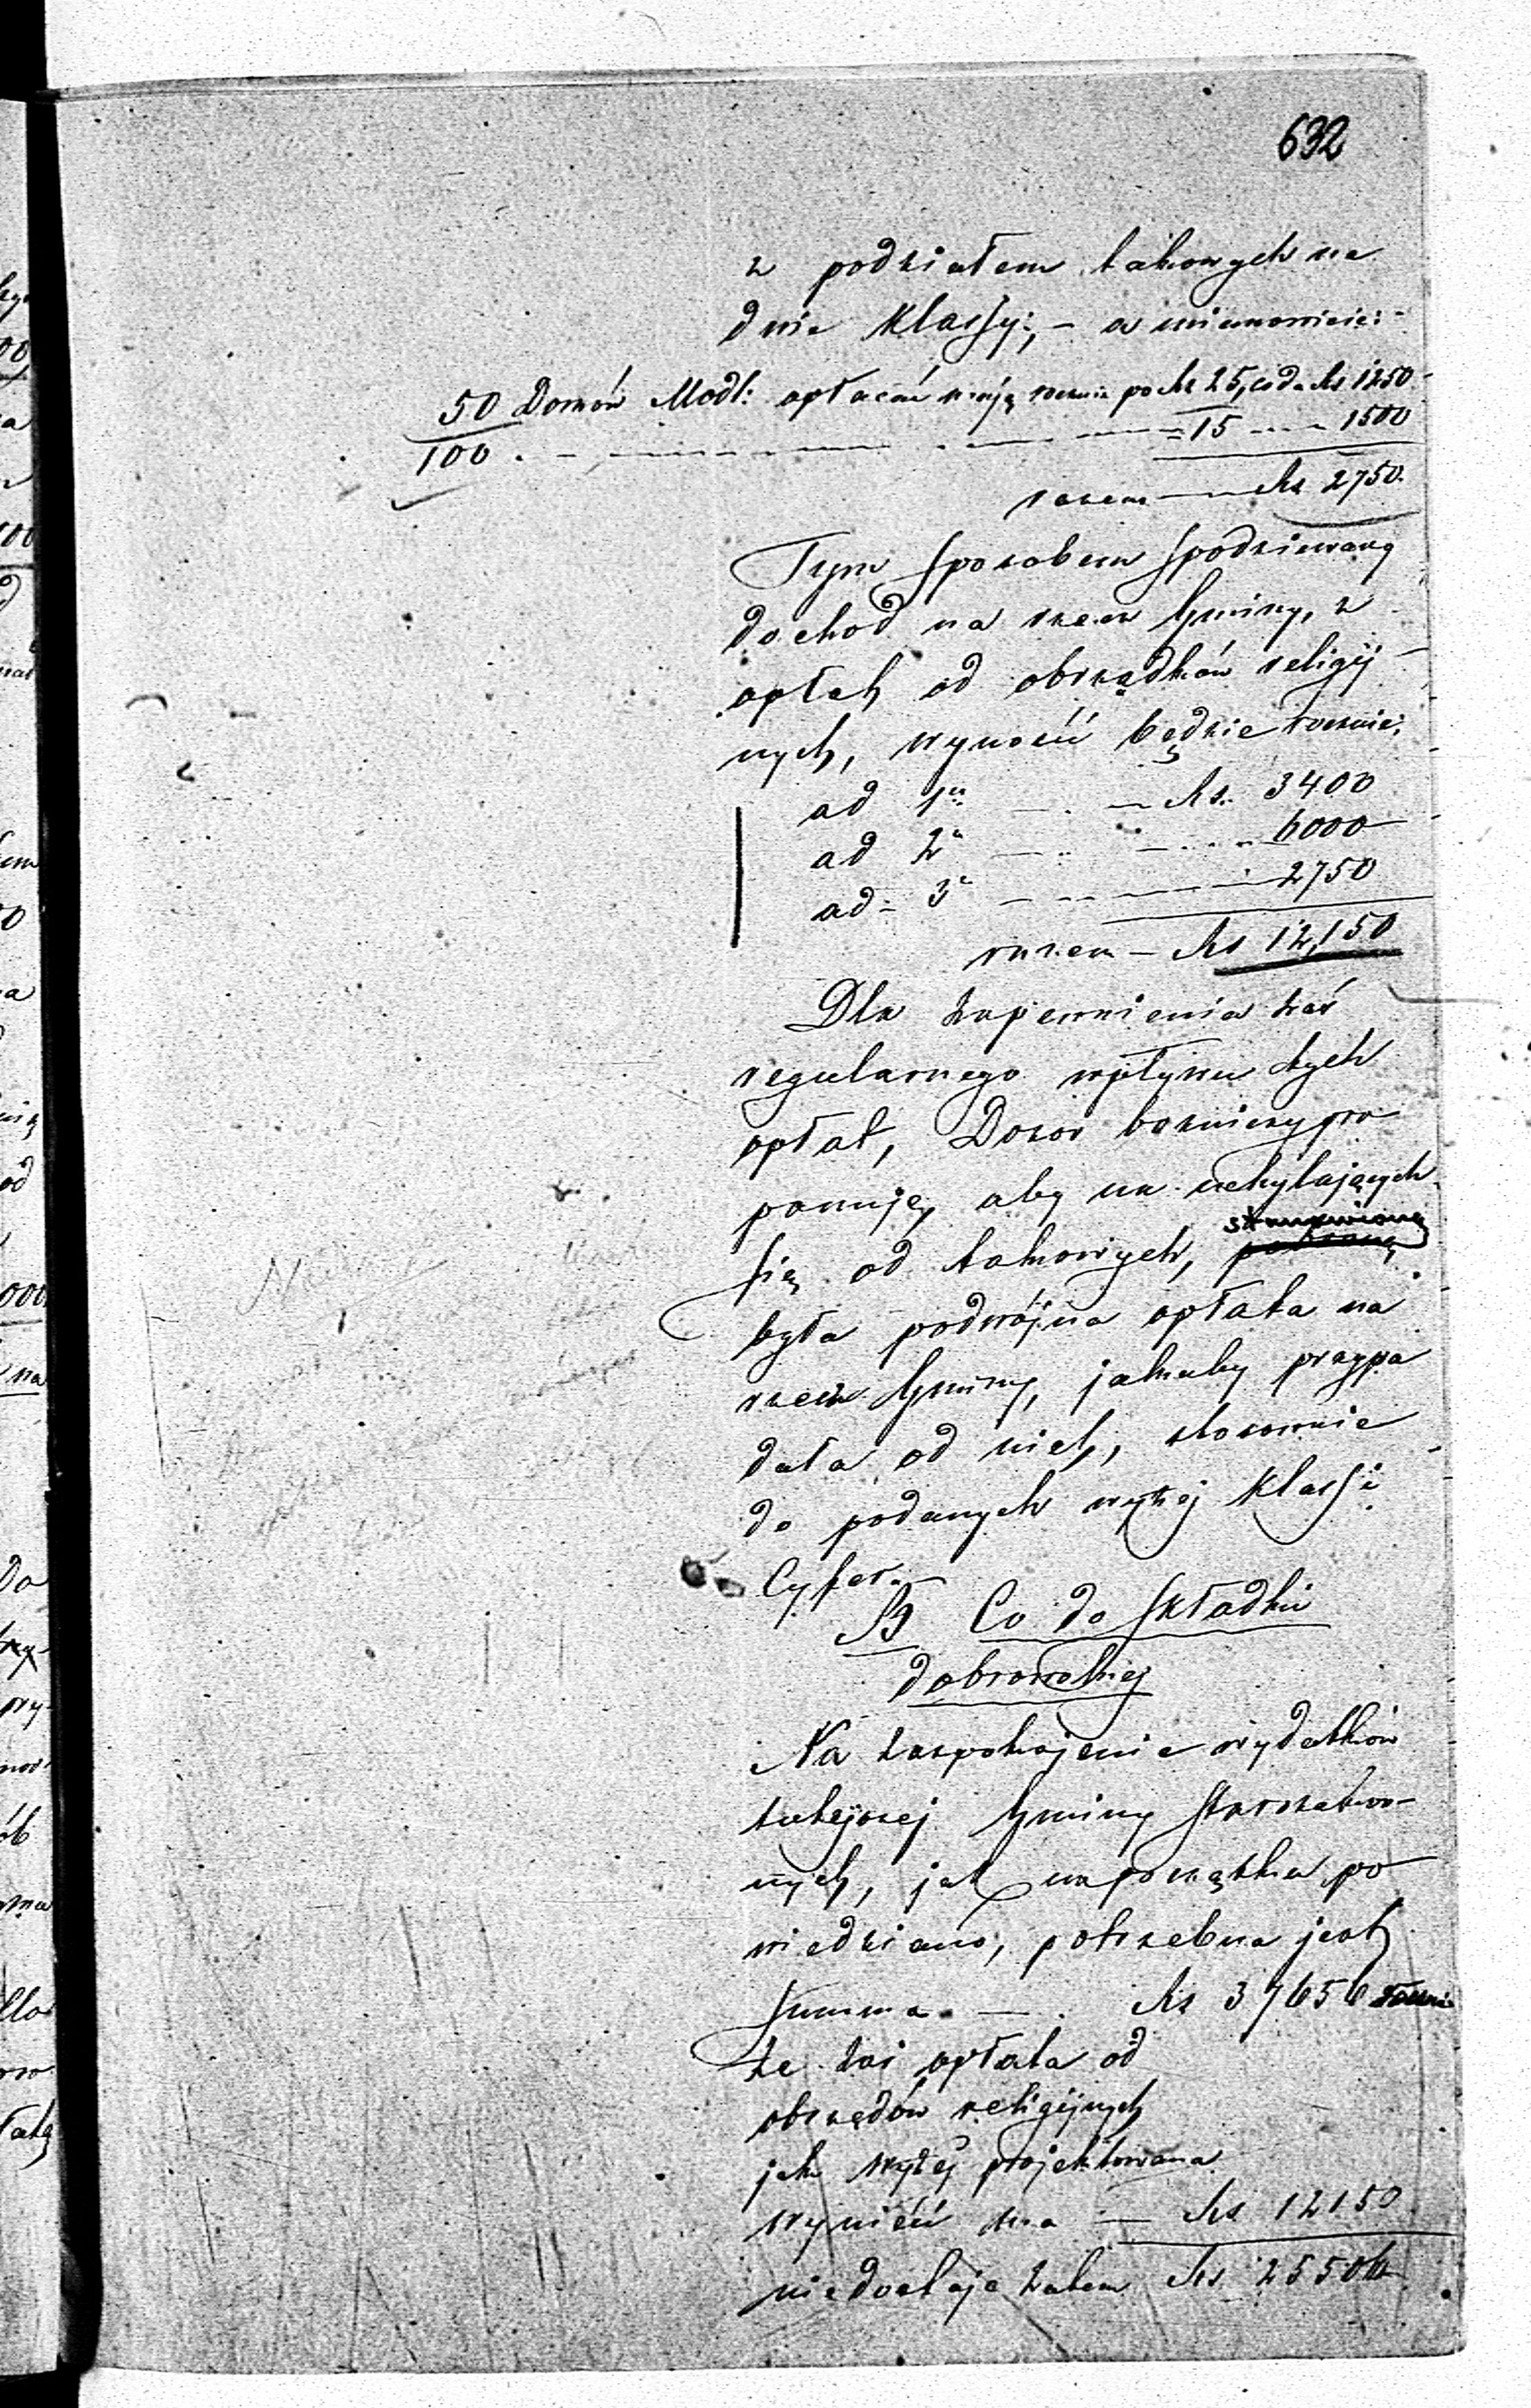 632
z podziałem takowych na
dwie Klassy; – a mianowicie:
50 Domów Modl: opłacać mają rocznie po Rs 25, co da Rs 1250
100 . – – – – 15 – – 1500
razem – Rs 2750.
Tym sposobem spodziewany
dochod na rzecz Gminy, z
opłat od obrządków religij
nych, wynosić będzie rocznie:
ad 1º – . – Rs. 3400
ad 2º – .. – . . . 6000
ad – 3º – – – 2750
razem – Rs 12,150
Dla zapewnienia zaś
regularnego wpływu tych
opłat, Dozor bożniczy pro
ponuje, aby na uchylających
stanowioną
się od takowych, pobraną
była podwójna opłata na
rzecz Gminy, jakaby przypa
dała od nich, stosownie
do podanych wyżej Klass i
Cyfer. –
B Co do składki
dobrowolnej
Na zaspokojenie wydatków
tutejszej Gminy Starozakon–
nych, jak na początku po
wiedziano, potrzebna jest
summa – . Rs 37656
że zaś opłata od
obrzędów religijnych
jak wyżej projektowana
wynieść ma – Rs 12150
niedostaje zatem Rs 25506